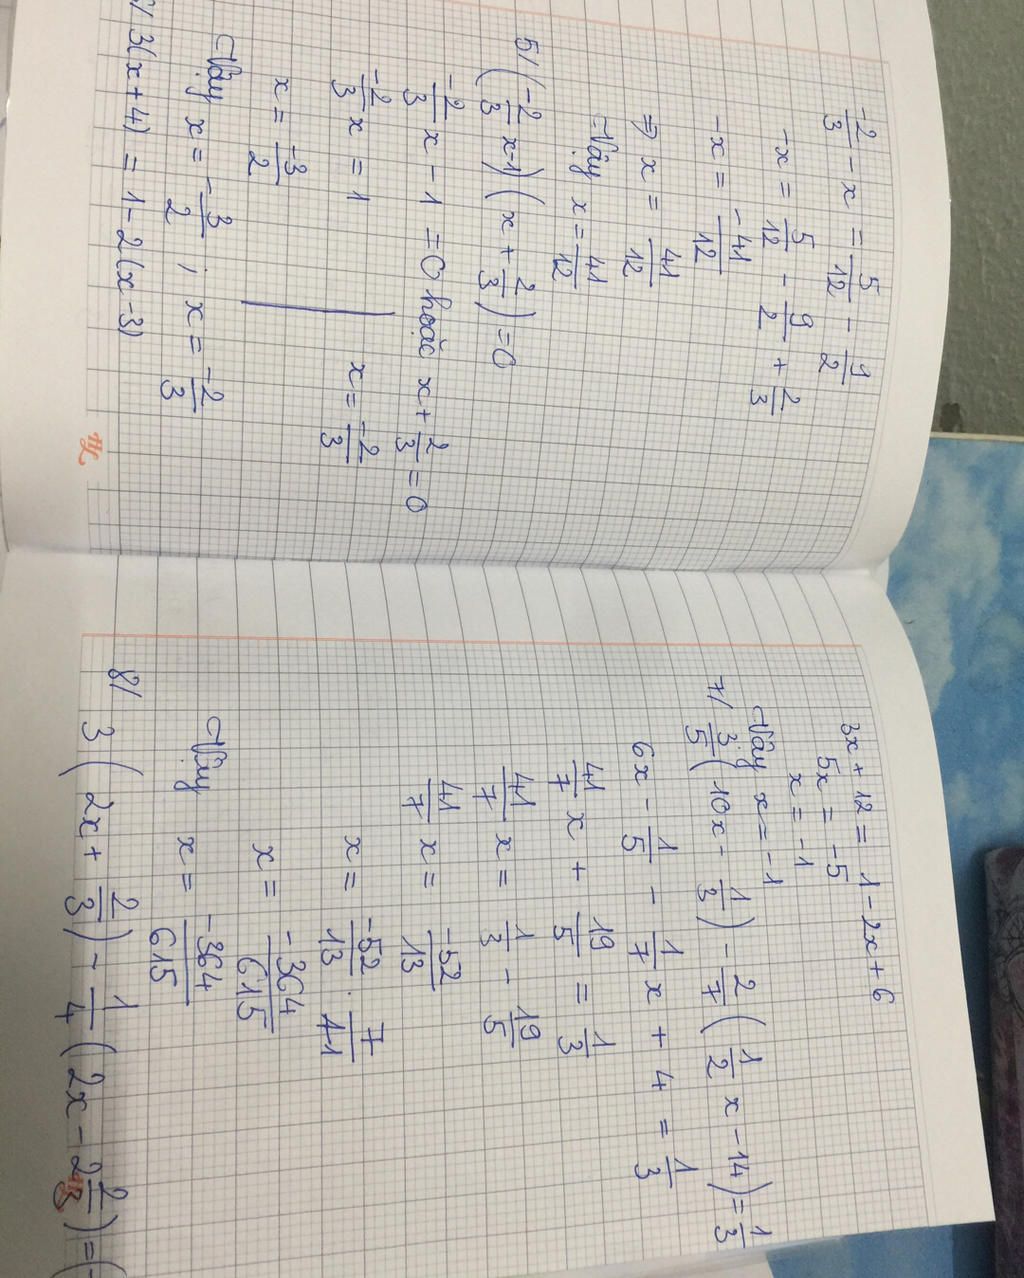 -2/3 - x = 5/12 - 9/2
-x = 5/12 - 9/2 + 2/3
-x = -41/12
⇒ x = 41/12
Vậy x = 41/12
5/ (-2/3 x-1)(x + 2/3) = 0
-2/3 x - 1 = 0 hoặc x + 2/3 = 0
-2/3 x = 1 x = -2/3
x = -3/2
Vậy x = -3/2 ; x = -2/3
3(x+4) = 1-2(x-3)
3x + 12 = 1 - 2x + 6
5x = -5
x = -1
Vậy x = -1
7/ 3/5 (10x - 1/3) - 2/7 (1/2 x - 14) = 1/3
6x - 1/5 - 1/7 x + 4 = 1/3
41/7 x + 19/5 = 1/3
41/7 x = 1/3 - 19/5
41/7 x = -52/13
x = -52/13 . 7/41
x = -364/615
Vậy x = -364/615
8/ 3 (2x + 2/3) - 1/4 (2x - 2 2/3) =